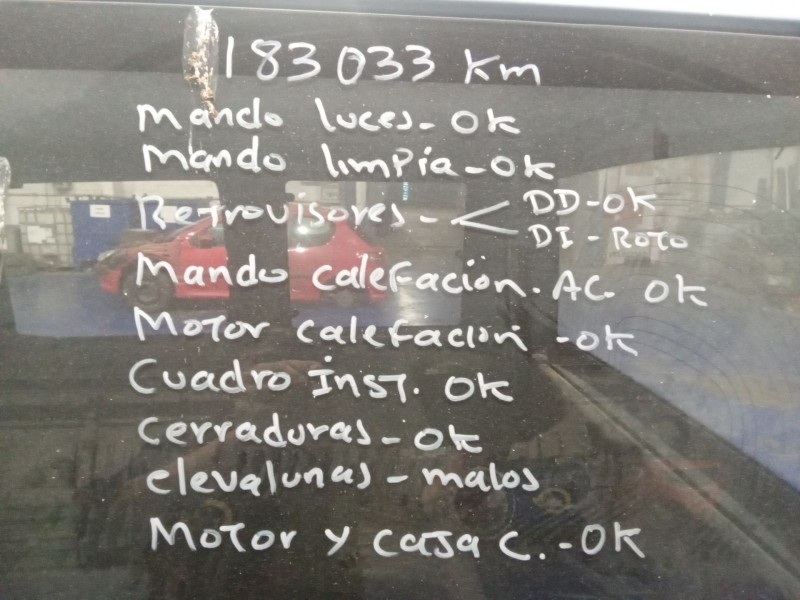 183033 Km
Mando luces - OK
Mando limpia - OK
Retrovisores - < DD - OK
DI - ROTO
Mando calefacion. AC. OK
Motor calefacion - OK
Cuadro Inst. OK
cerraduras - OK
elevalunas - malos
Motor y caja C. - OK